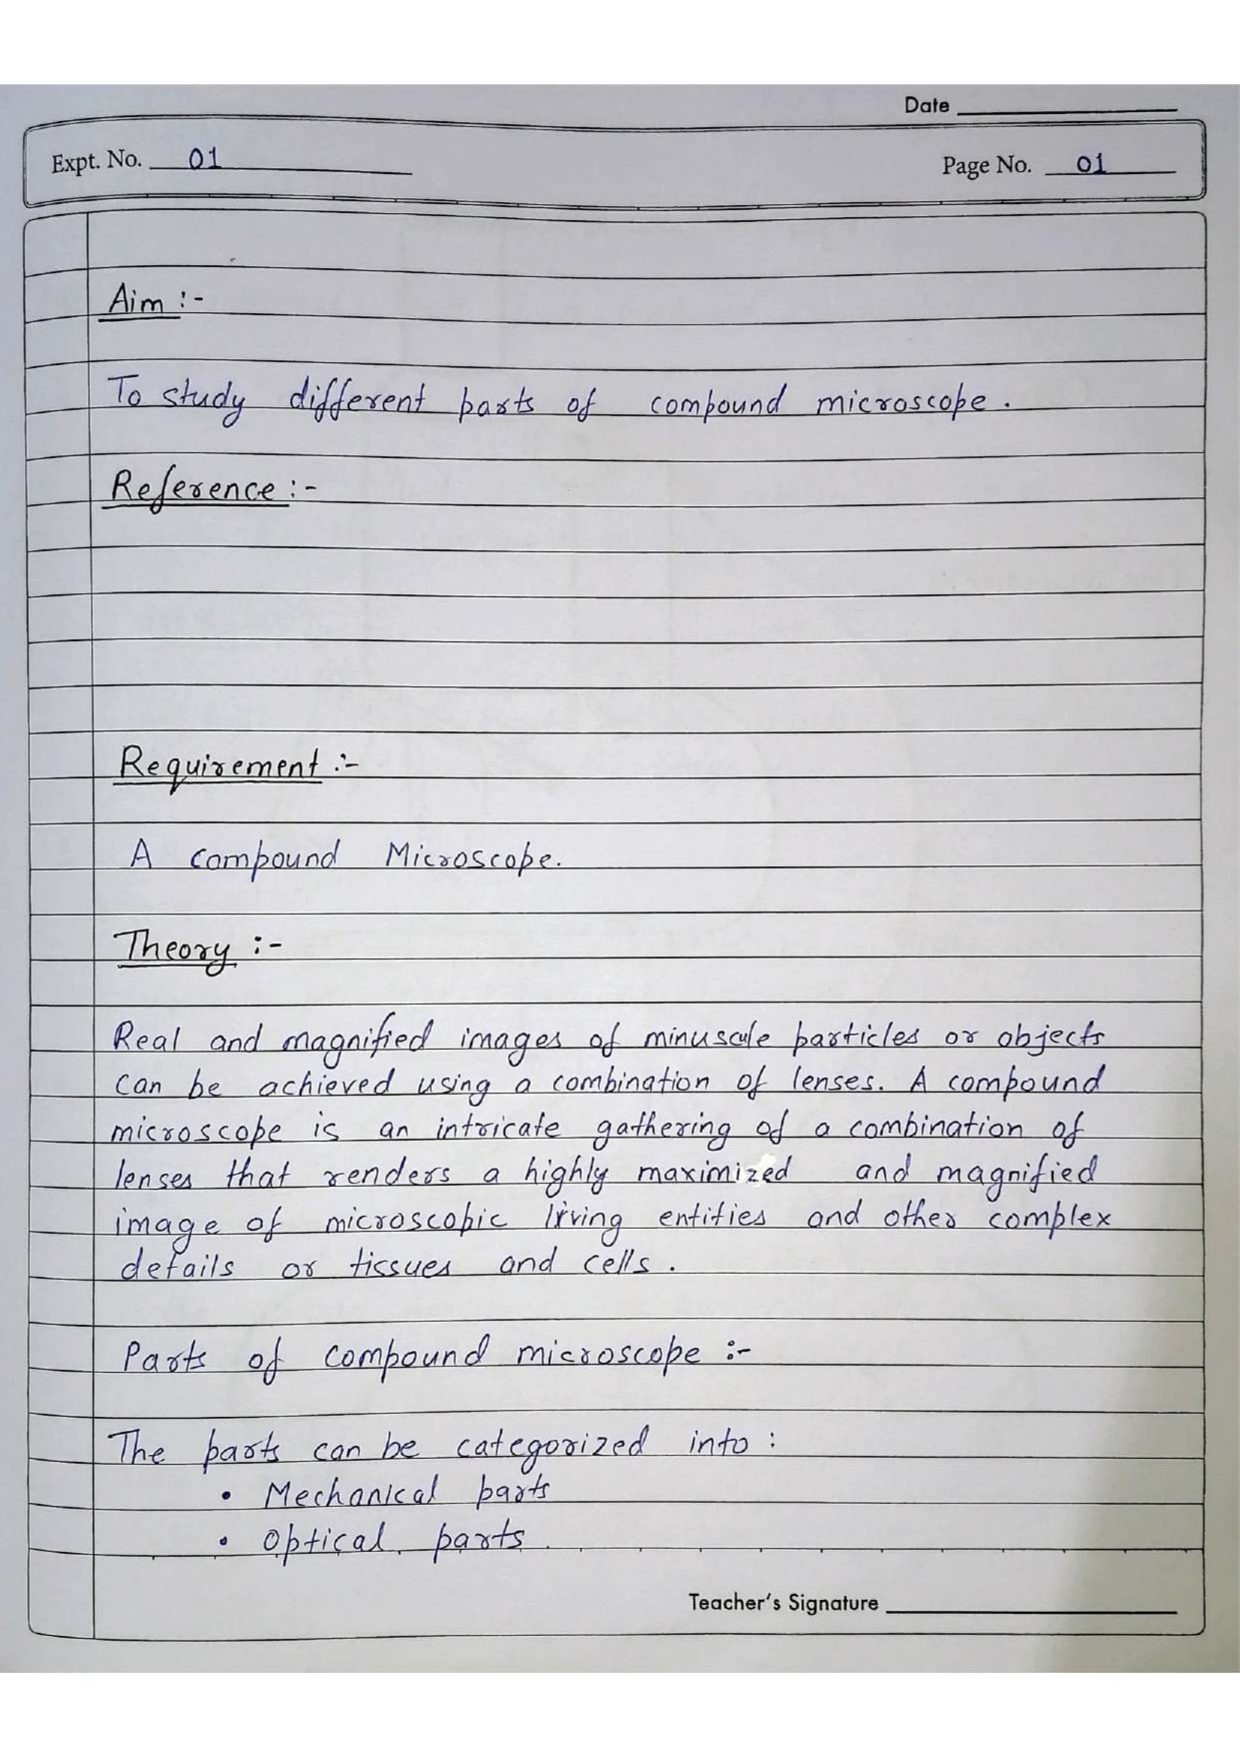 Date
Expt. No. 01
Page No. 01
Aim :-
To study different parts of compound microscope.
Reference :-
Requirement :-
A compound Microscope.
Theory :-
Real and magnified images of minuscule particles or objects
can be achieved using a combination of lenses. A compound
microscope is an intricate gathering of a combination of
lenses that renders a highly maximized and magnified
image of microscopic living entities and other complex
details or tissues and cells.
Parts of compound microscope :-
The parts can be categorized into :
• Mechanical parts
• Optical parts
Teacher's Signature